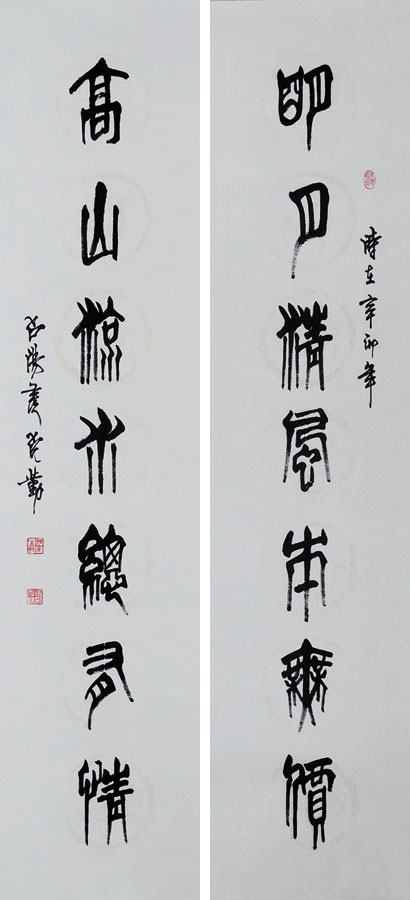 明月清風本無價
時在辛卯年
高山流水總有情